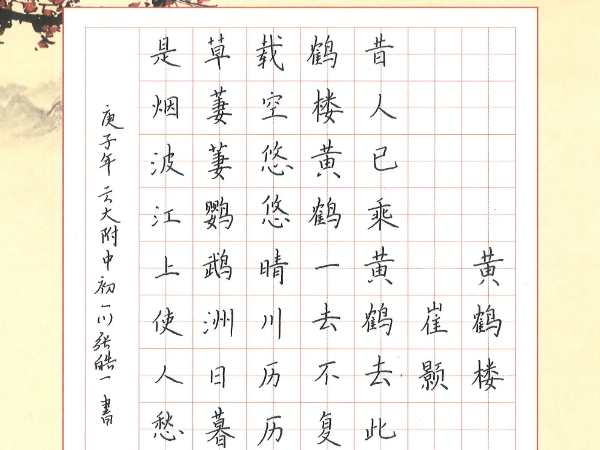 黄鹤楼
崔颢
昔人已乘黄鹤去此
鹤楼黄鹤一去不复
载空悠悠晴川历历
草萋萋鹦鹉洲日暮
是烟波江上使人愁
庚子年 云大附中初 张皓一書